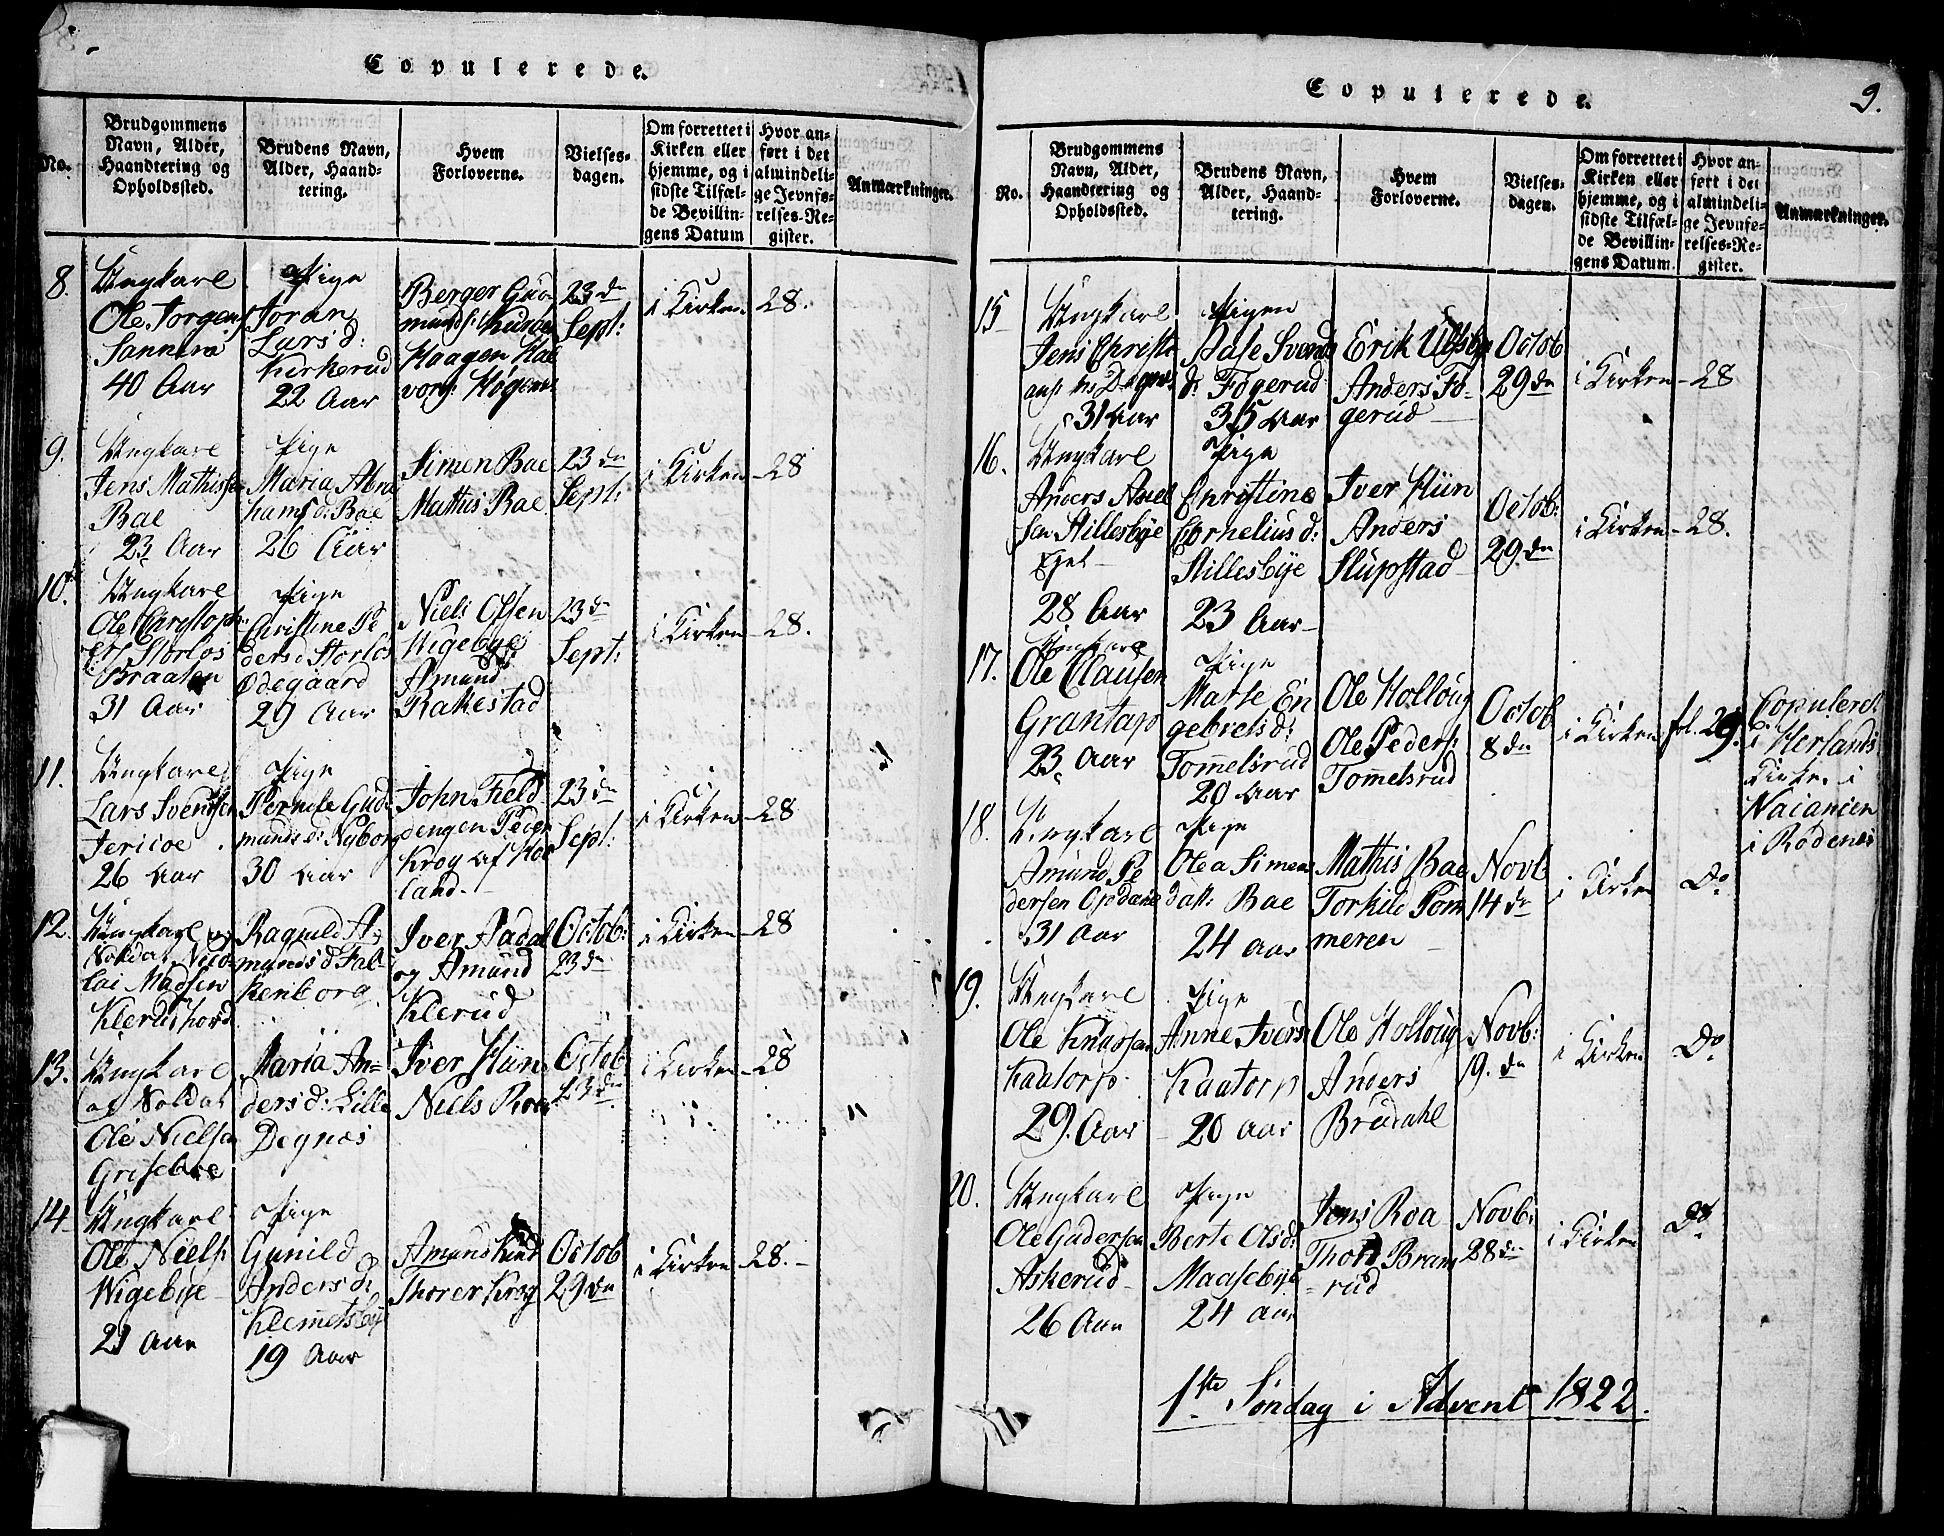 Copulerede.
No.
Brudgommens
Navn, Alder,
Haandtering og
Opholdssted.
Brudens Navn,
Alder, Haand-
tering.
Hvem
Forloverne.
Vielses-
dagen.
Om forrettet i
Kirken eller
hjemme, og i
sidste Tilfæl-
de Bevillin-
gens Datum
Hvor an-
ført i det
almindeli-
ge Jevnfø-
relses-Re-
gister.
Anmærkninger.
8.
Ungkarl
Ole Jorgens
40 Aar
Pige
Joran
Lars d:
Kirkerud
22 Aar
Berger Gud-
munds:
Haagen Hal
vors:
23 dn
Sept:
i Kirken
28.
9.
Ungkarl
Jens Mathissen
Bae
23 Aar
Pige
Maria Abra
hams d: Bae
26 Aar
Simen Bae
Mathis Bae
23 dn
Sept:
i Kirken
28
10.
Ungkarl
Ole Christoph:
Storlos
Braaten
31 Aar
Pige
Christine Pe
ders d: Storlos
Ødegaard
29 Aar
Niels Olsen
Wigebye
Amund
Rakestad
23 d
Sept:
i Kirken
28.
11.
Ungkarl
Lars Svendsen
Jericoe
26 Aar
Pige
Pernile Gud-
munds d: Nyborg
30 Aar
John Field
dengen Peder
Krog af Hø
land.
23 dn
Sept:
i Kirken
28
12.
Ungkarl og
Soldat Nico-
lai Madsen
Klerudshord
Ragnild A-
munds d Fal-
kenborg
Iver Aadal
og Amund
Klerud
Octob:
23 dn
i Kirken
28
13.
Ungkarl
og Soldat
Ole Nielsen
Griseboe
Maria An-
ders d: Lille
Degnes
Iver Hün
Niels Roa
Octob
23 dn
i Kirken
28
14
Ungkarl
Ole Niels:
Wigebye
21 Aar
Pige
Gunild
Anders d:
Klemetsbye
19 Aar
Amund
Thorer Krog
Octob
29 dn
i Kirken
28.
Copulerede.
9.
No.
Brudgommens
Navn, Alder,
Haandtering og
Opholdssted.
Brudens Navn,
Alder, Haand-
tering.
Hvem
Forloverne.
Vielses-
dagen.
Om forrettet i
Kirken eller
hjemme, og i
sidste Tilfæl-
de Bevillin-
gens Datum.
Hvor an-
ført i det
almindeli-
ge Jevnfø-
relses-Re-
gister.
Anmærkninger.
15
Ungkarl
Jens Christi
ans:
31 Aar
Pigen
Aase Svends
d: Fogerud
35 Aar
Erik Ulfsbye
Anders Fo-
gerud
Octob
29 dn
i Kirken
28
16.
Ungkarl
Anders Axel
sen Stillesbye
Ejet
28 Aar
Pige
Christine
Cornelius d:
Stillesbye
23 Aar
Iver Hün
Anders
Slupstad
Octob:
29. dn
i Kirken
28.
17.
Ungkarl
Ole Clausen
Grantap
23 Aar
Pige
Marte En
gebrets d:
Tomelsrud
20 Aar
Ole Holloug
Ole Peders:
Tomelsrud
Octob
8 dn
i Kirken
fol. 29.
Copuleret
i Herlands
Kirke i
Naianien
i Rødenes
18
Ungkarl
Amund Pe
dersen Opdahl
31 Aar
Pige
Olea Simens
datt: Bae
24 Aar
Mathis Bae
Torkild Tom
meren
Novb
14 dn
i Kirken
Do
19.
Ungkarl
Ole Knudsen
Kaatorp
29. Aar
Pige
Anne Ivers
Kaatorp
20 Aar
Ole Holloug
Anders
Brudahl
Novb:
19. dn
i Kirken
Do
20.
Ungkarl
Ole Gudersen
Askerud
26 Aar
Pige
Berte Ols d:
Maasebye
24 Aar
Jens Roa
Thord Bram
rud
Novb:
28 dn
i Kirken
Do
1ste Søndag i Advent 1822.